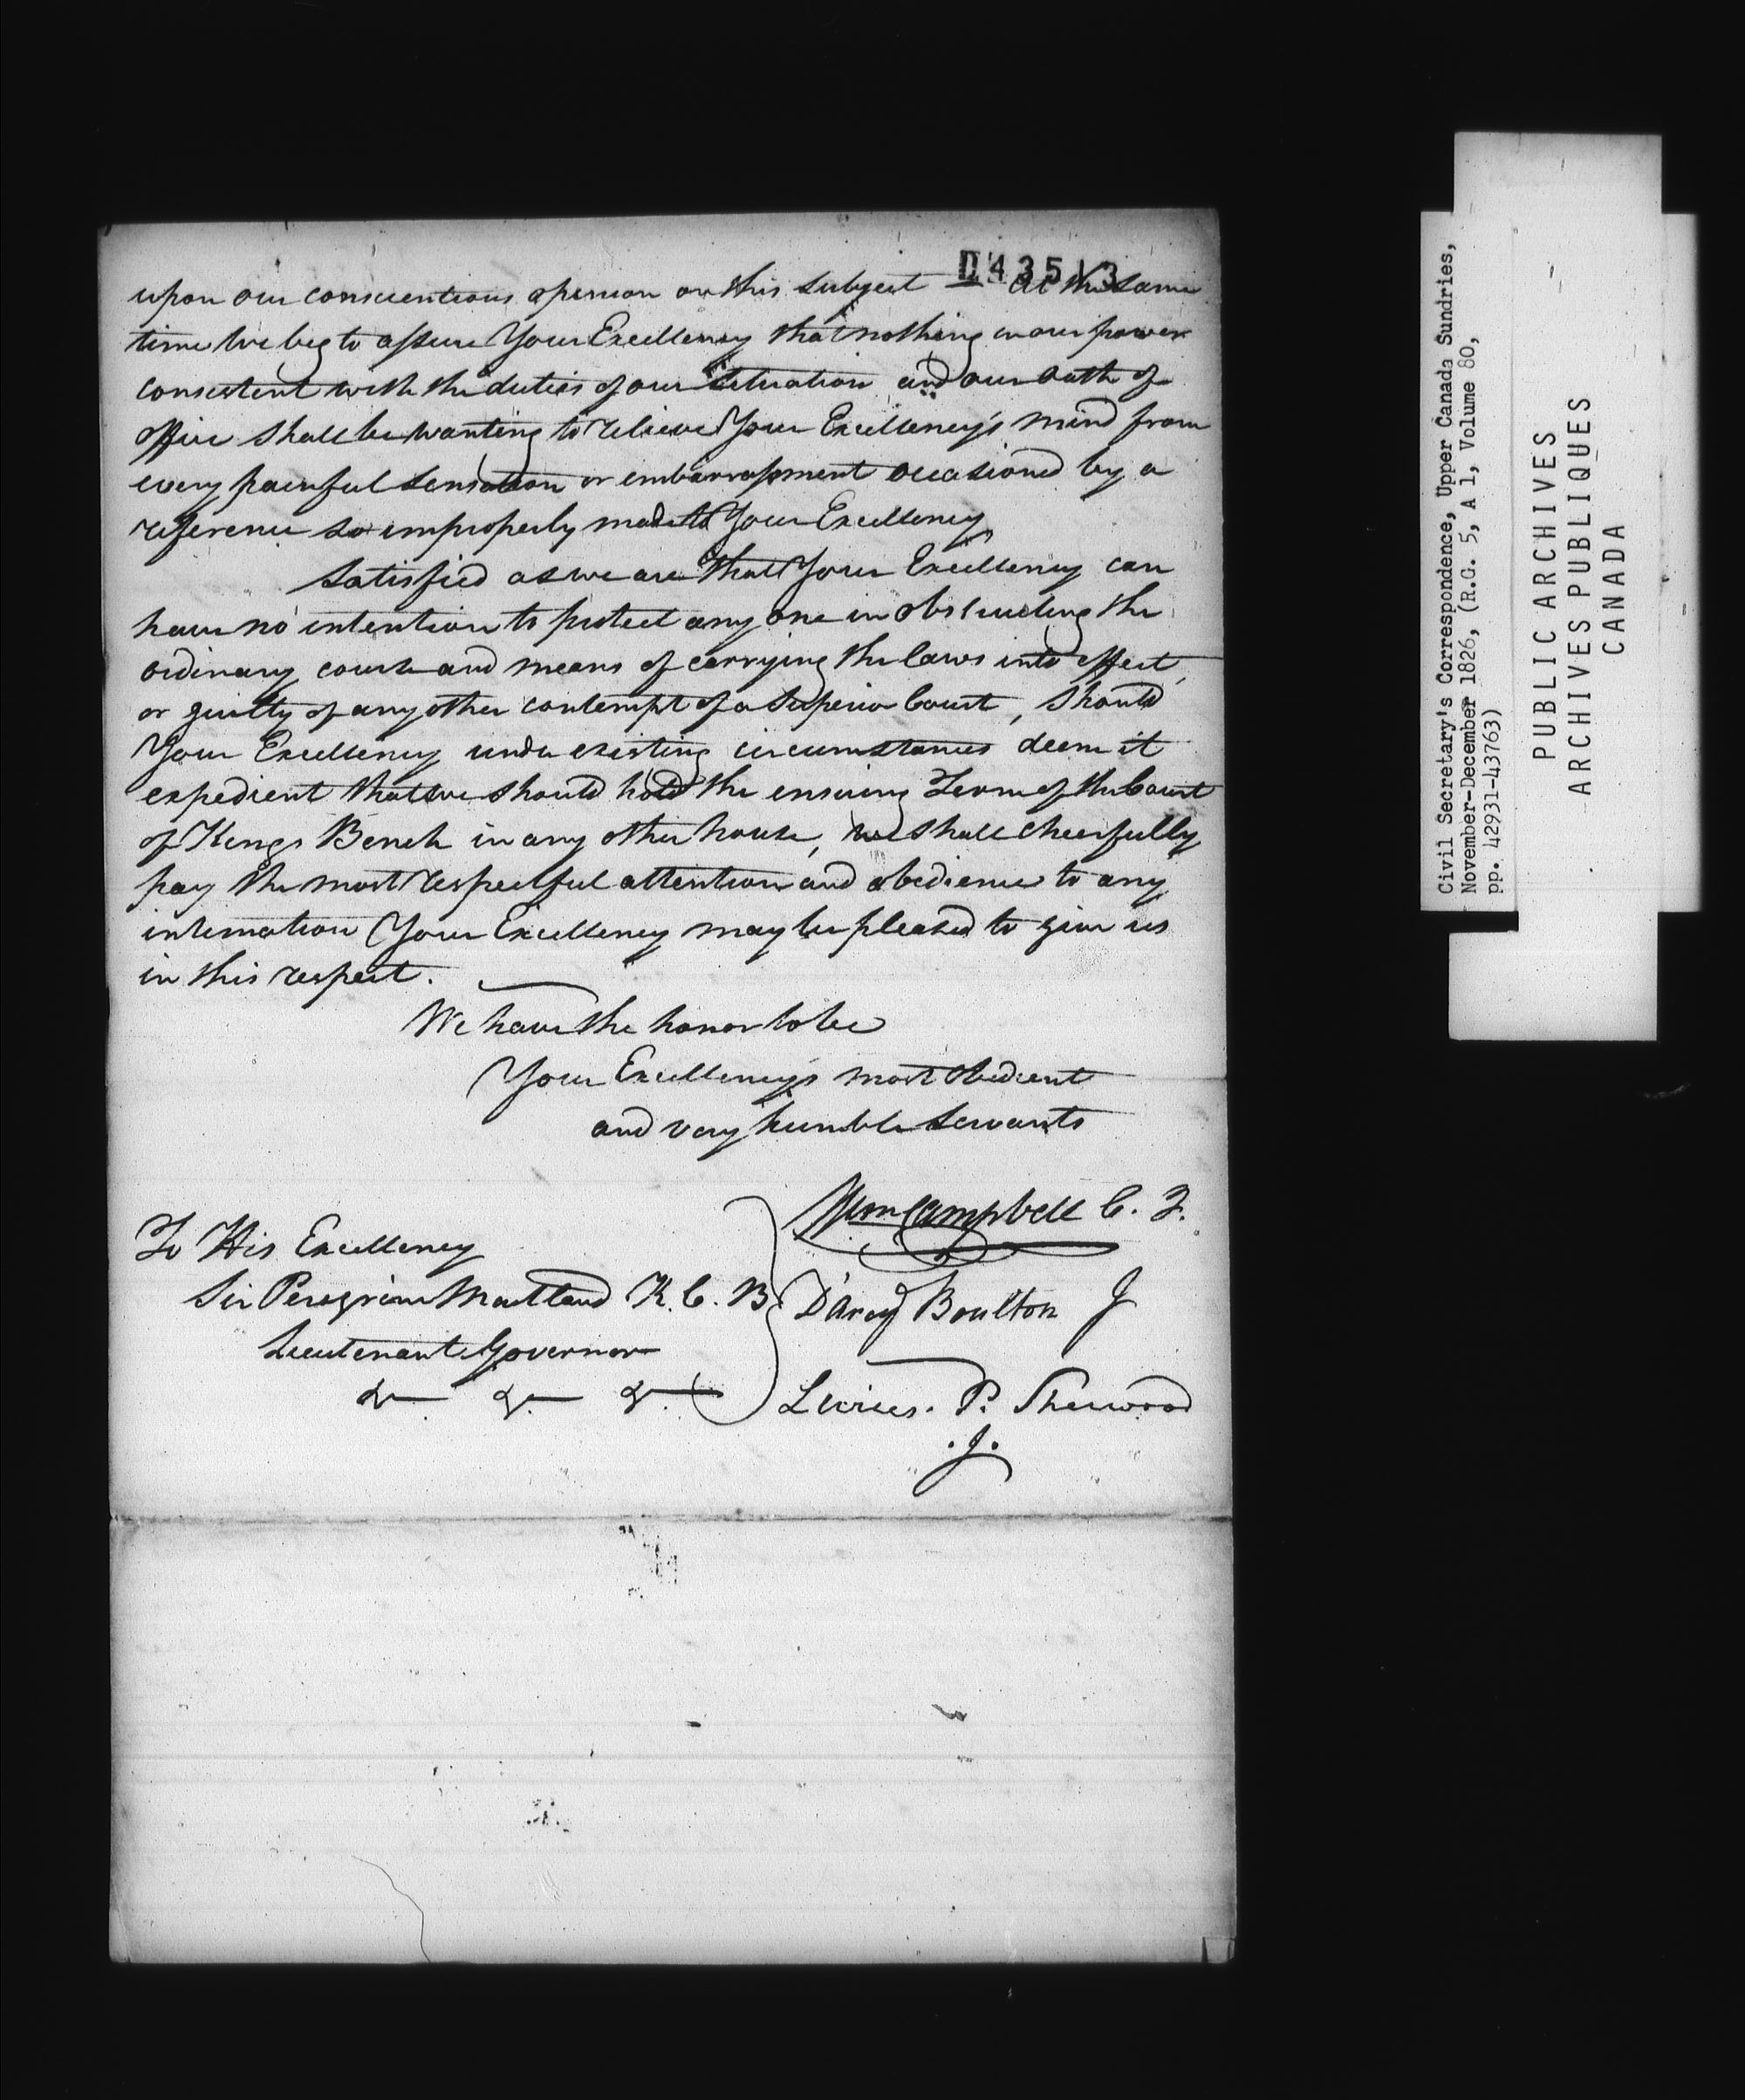 D43513
upon our conscientious opinion on this subject — at the same
time we beg to assure Your Excellency that nothing in our power
consistent with the duties of our situation and our oath of
office shall be wanting to relieve Your Excellency's mind from
every painful sensation or embarrassment occasioned by a
reference so improperly made to Your Excellency
Satisfied as we are that Your Excellency can
have no intention to protect any one in obstructing the
ordinary course and means of carrying the laws into effect,
or guilty of any other contempt of a Superior Court, should
Your Excellency under existing circumstances deem it
expedient that we should hold the ensuing Term of the Court
of Kings Bench in any other house, we shall cheerfully
pay the most respectful attention and obedience to any
intimation Your Excellency may be pleased to give us
in this respect.
We have the honor to be
Your Excellency's most obedient
and very humble servants
Wm Campbell C. J.
To His Excellency
Sir Peregrine Maitland K. C. B
D'Arcy Boulton J
Lieutenant Governor
&c. &c. &c.
Levius. P. Sherwood
.J.
Civil Secretary's Correspondence, Upper Canada Sundries,
November-December 1826, (R.G. 5, A 1, Volume 80,
pp. 42931-43763)
PUBLIC ARCHIVES
ARCHIVES PUBLIQUES
CANADA